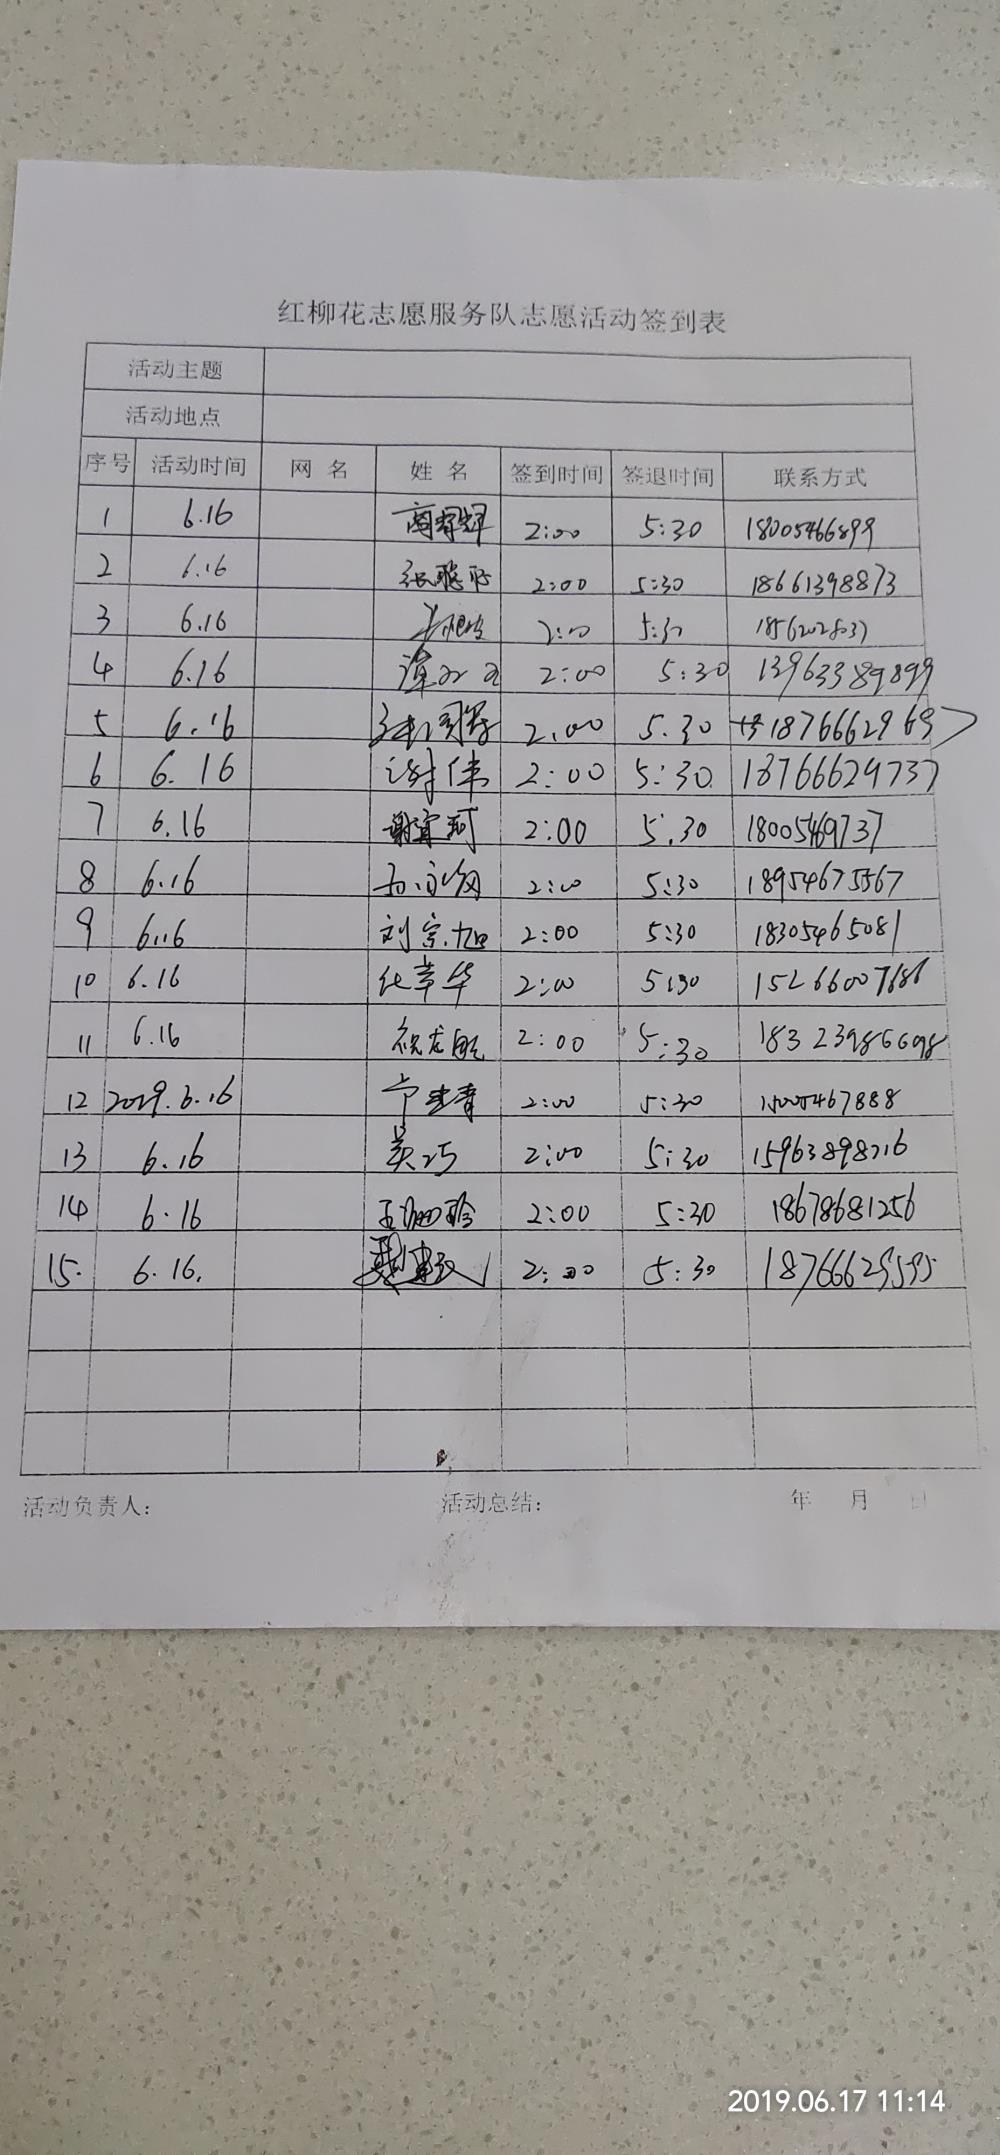 红柳花志愿服务队志愿活动签到表
活动主题
活动地点
序号 活动时间 网 名 姓 名 签到时间 签退时间 联系方式
1 6.16 2:00 5:30 18005466899
2 6.16 2:00 5:30 18661398873
3 6.16 2:00 5:30
4 6.16 2:00 5:30 13963389899
5 6.16 2.00 5.30
6 6.16 谢伟 2:00 5:30 18766629737
7 6.16 谢宜珂 2:00 5.30 18005469737
8 6.16 2:00 5:30 18954675567
9 6.16 刘宗旭 2:00 5:30 18305465081
10 6.16 2:00 5:30 15266007686
11 6.16 祝龙航 2:00 5:30
12 2019.6.16 2:00 5:30
13 6.16 英巧 2:00 5:30
14 6.16 2:00 5:30 18678681256
15. 6.16. 2:00 5:30 18766629595
活动负责人: 活动总结: 年 月 日
2019.06.17 11:14